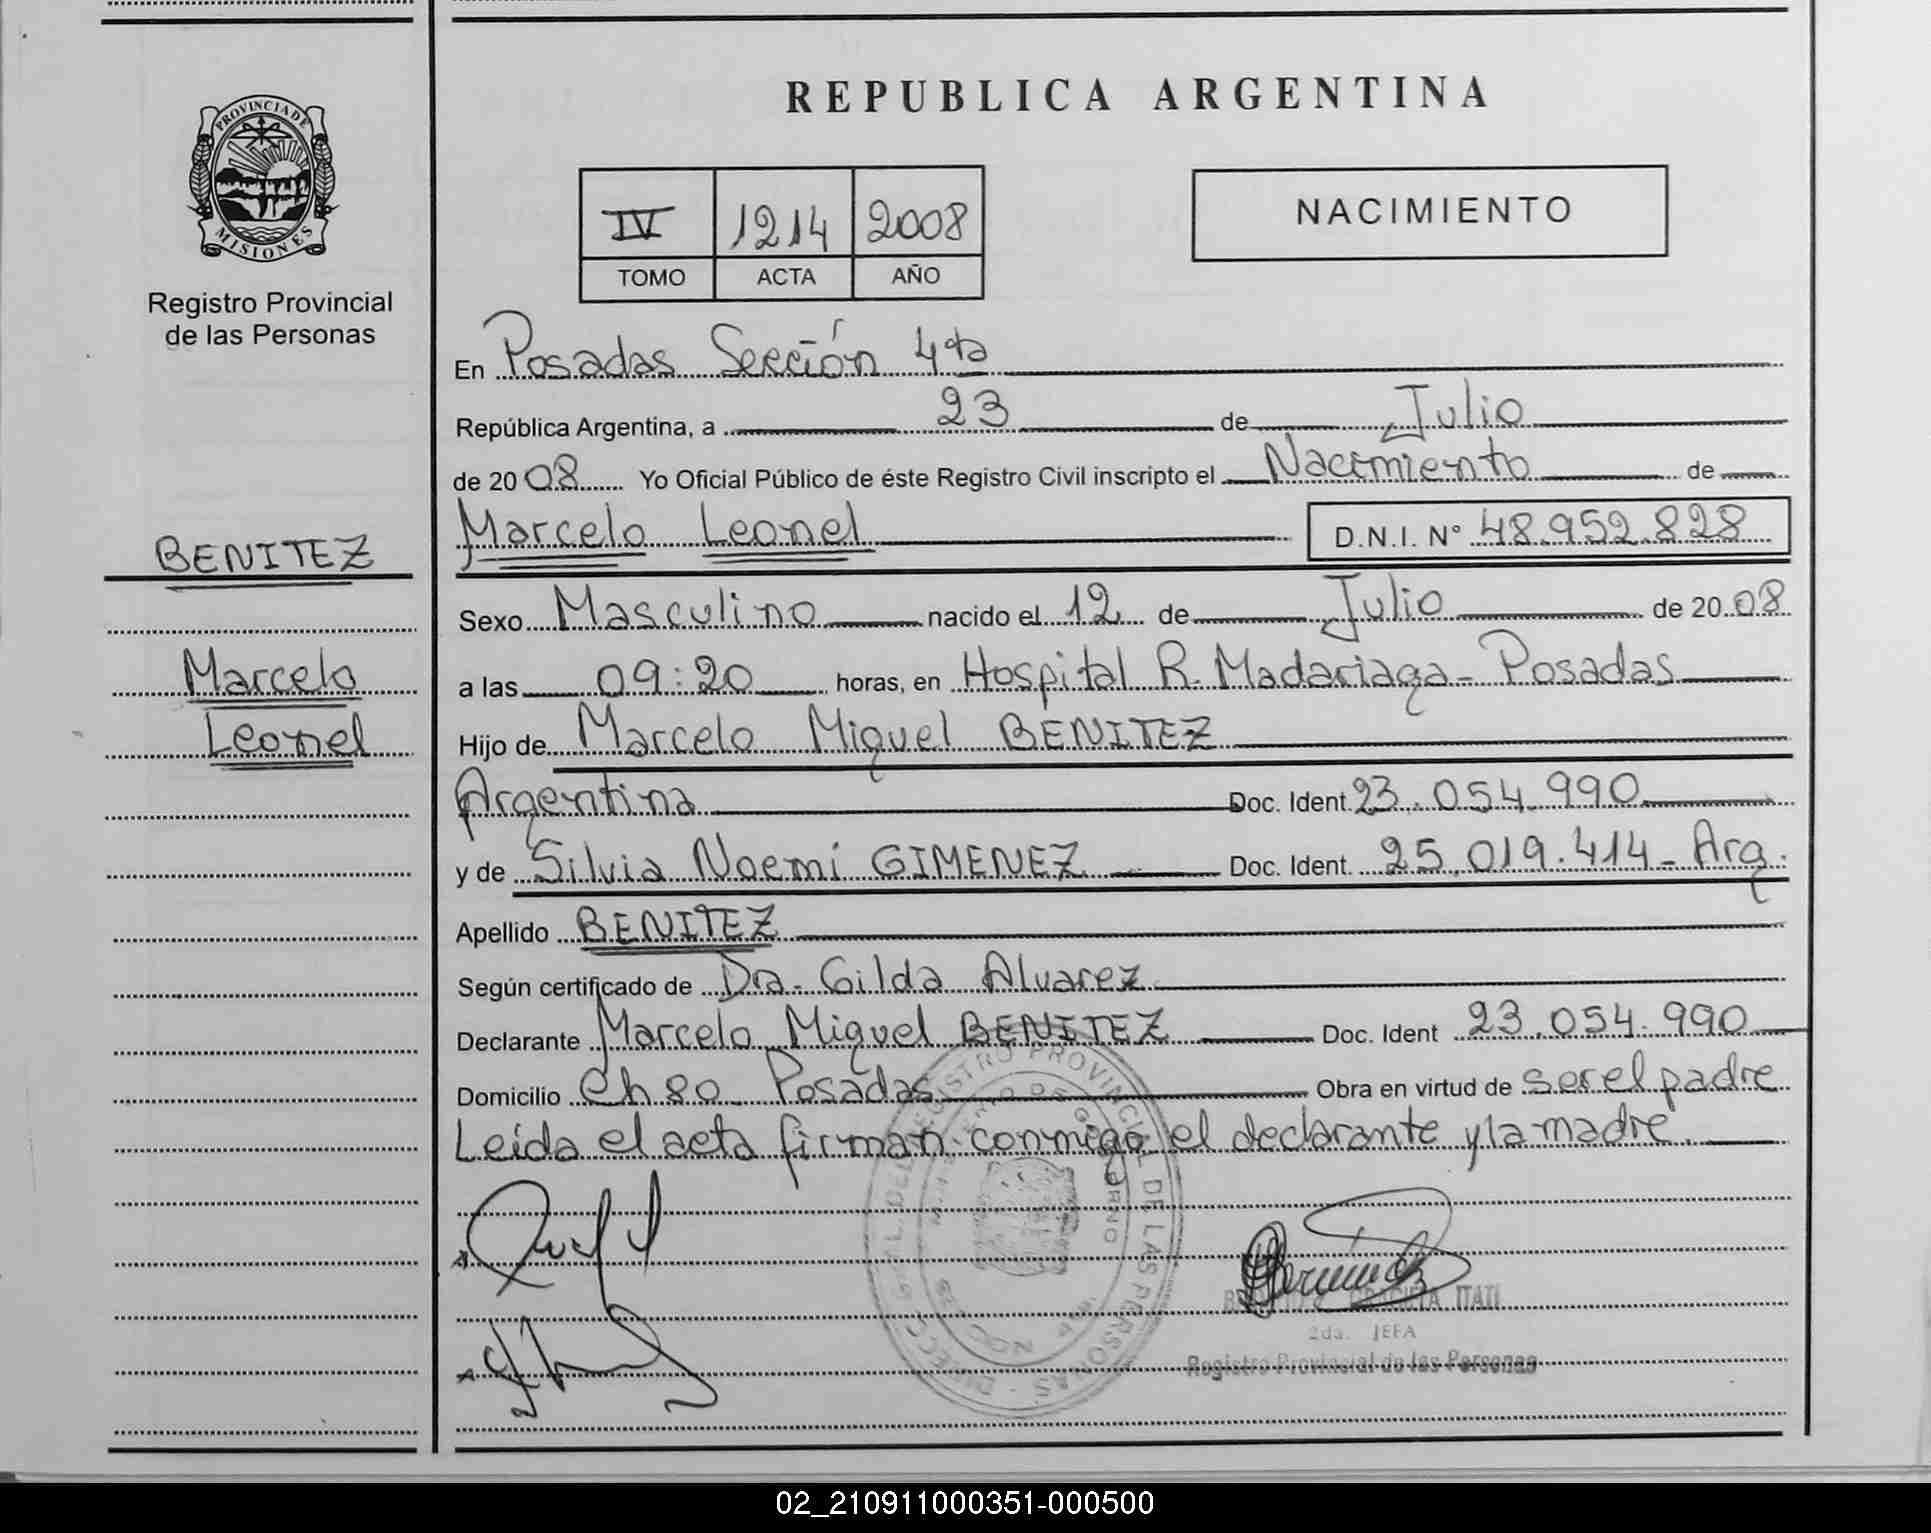 REPUBLICA ARGENTINA
PROVINCIA DE
MISIONES
Registro Provincial
de las Personas
IV 1214 2008
TOMO ACTA AÑO
NACIMIENTO
En Posadas Sección 4ta
República Argentina, a 23 de Julio
de 2008 Yo Oficial Público de éste Registro Civil inscripto el Nacimiento de
Marcelo Leonel D.N.I. N° 48.952.828
BENITEZ
Marcelo
Leonel
Sexo Masculino nacido el 12 de Julio de 2008
a las 09:20 horas, en Hospital R. Madariaga - Posadas
Hijo de Marcelo Miguel BENITEZ
Argentina Doc. Ident 23.054.990
y de Silvia Noemí GIMENEZ Doc. Ident. 25.019.414 - Arg.
Apellido BENITEZ
Según certificado de Dra. Gilda Alvarez
Declarante Marcelo Miguel BENITEZ Doc. Ident 23.054.990
Domicilio Ch 80 Posadas Obra en virtud de ser el padre
Leída el acta firman conmigo el declarante y la madre.
REGISTRO PROVINCIAL DE LAS PERSONAS
GRACIELA ITATI
2da. JEFA
Registro Provincial de las Personas
02_210911000351-000500